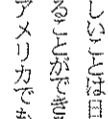 しいことは日
ることができ
アメリカでも